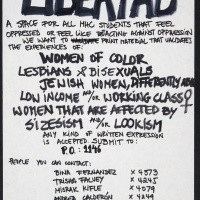 LIBERTAD
A SPACE FOR ALL MHC STUDENTS THAT FEEL
OPPRESSED OR FEEL LIKE REACTING AGAINST OPPRESSION
WE WANT TO PRINT MATERIAL THAT VALIDATES
THE EXPERIENCES OF:
WOMEN OF COLOR
LESBIANS & BISEXUALS
JEWISH WOMEN, DIFFERENTLY ABLED
LOW INCOME AND/OR WORKING CLASS ♀
WOMEN THAT ARE AFFECTED BY
SIZESISM AND/OR LOOKISM
ANY KIND OF WRITTEN EXPRESSION
IS ACCEPTED. SUBMIT TO:
P.O: 1146
PEOPLE YOU CAN CONTACT:
BINA FERNANDEZ X 4373
TRISHA FALVEY X 4245
MISRAK KIFLE X 4079
CALDERÓN X 4244